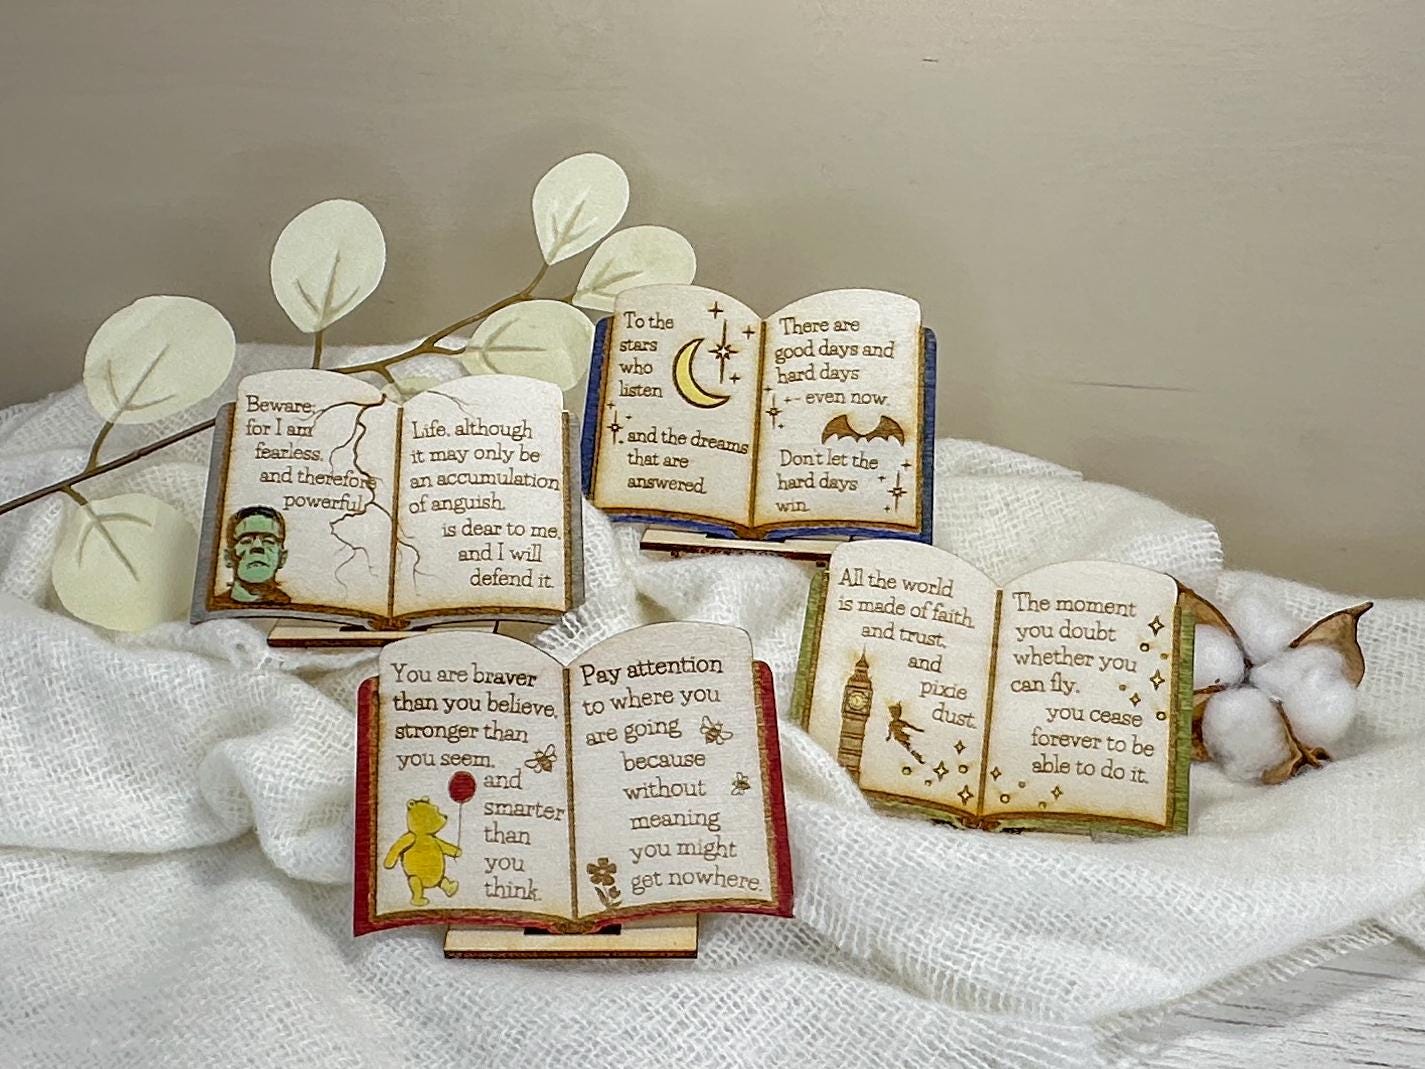 Beware;
for I am
fearless,
and therefore
powerful.
Life, although
it may only be
an accumulation
of anguish,
is dear to me,
and I will
defend it.
To the
stars
who
listen
and the dreams
that are
answered.
There are
good days and
hard days
- even now.
Don't let the
hard days
win.
You are braver
than you believe,
stronger than
you seem,
and
smarter
than
you
think.
Pay attention
to where you
are going
because
without
meaning
you might
get nowhere.
All the world
is made of faith,
and trust,
and
pixie
dust.
The moment
you doubt
whether you
can fly,
you cease
forever to be
able to do it.